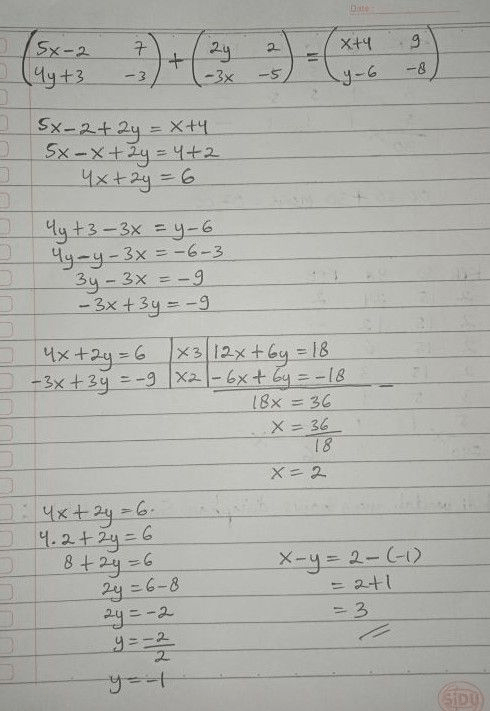 Date:
(5x-2 7) + (2y 2) = (x+4 9)
(4y+3 -3) (-3x -5) (y-6 -8)
5x-2+2y = x+4
5x-x+2y = 4+2
4x+2y = 6
4y+3-3x = y-6
4y-y-3x = -6-3
3y-3x = -9
-3x+3y = -9
4x+2y = 6 | x3 | 12x+6y = 18
-3x+3y = -9 | x2 | -6x+6y = -18 -
18x = 36
x = 36
18
x = 2
4x+2y = 6.
4.2+2y = 6
8+2y = 6
2y = 6-8
2y = -2
y = -2
2
y = -1
x-y = 2-(-1)
= 2+1
= 3
SiDU